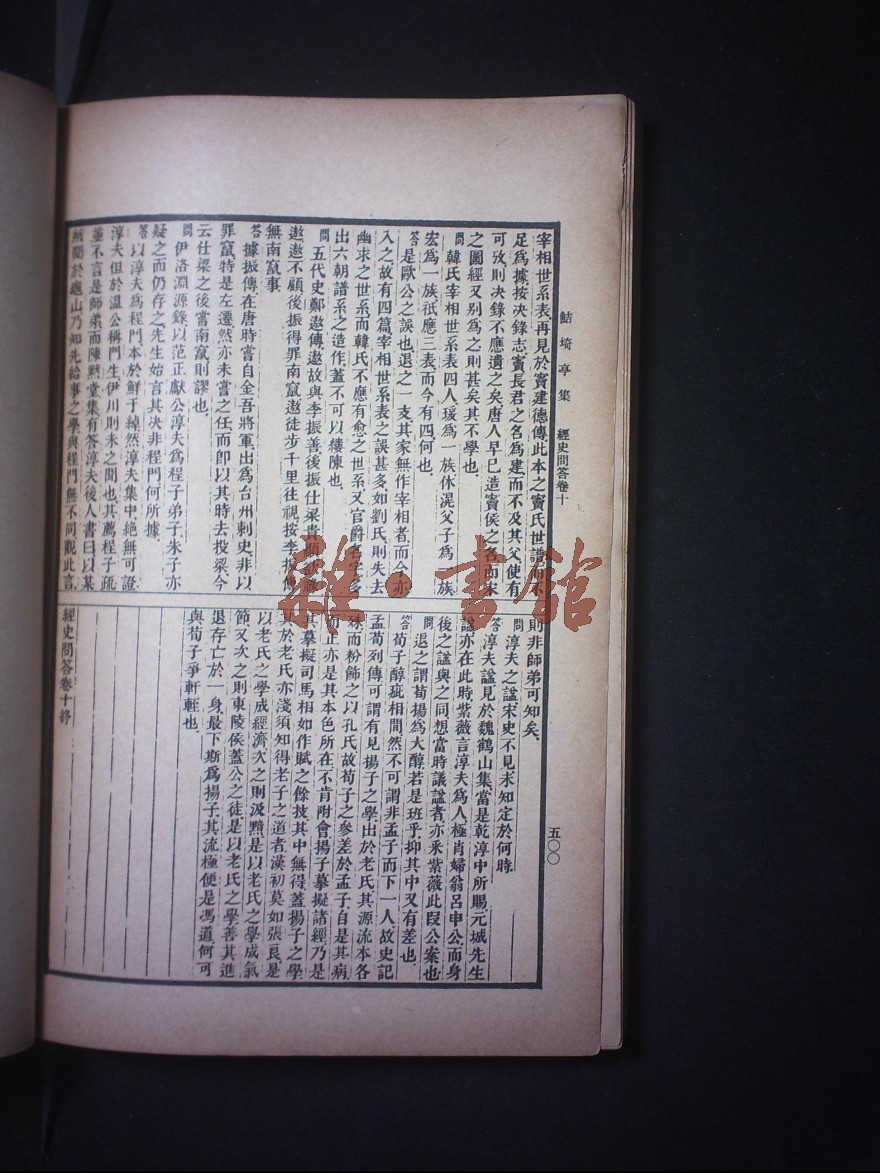 鮚埼亭集 經史問答卷十
五〇〇
宰相世系表再見於竇建德傳此本之竇氏世譜而不
足爲據按決錄志竇長君之名爲建而不及其父使有
可攷則決錄不應遺之矣唐人早已造竇侯之名而宋
之圖經又別爲之則甚矣其不學也
問韓氏宰相世系表四人瑗爲一族休滉父子爲一族
宏爲一族祇應三表而今有四何也
答是歐公之誤也退之一支其家無作宰相者而今亦
入之故有四篇宰相世系表之誤甚多如劉氏則失去
幽求之世系而韓氏不應有愈之世系又官爵名字多
出六朝譜系之造作蓋不可以縷陳也
問五代史鄭遨傳遨故與李振善後振仕梁貴顯欲祿
遨遨不顧後振得罪南竄遨徒步千里往視按李振傳
無南竄事
答據振傳在唐時嘗自金吾將軍出爲台州剌史非以
罪竄特是左遷然亦未嘗之任而卽以其時去投梁今
云仕梁之後嘗南竄則謬也
問伊洛淵源錄以范正獻公淳夫爲程子弟子朱子亦
疑之而仍存之先生始言其決非程門何所據
答以淳夫爲程門本於鮮于綽然淳夫集中絶無可證
淳夫但於溫公稱門生伊川則未之聞也其薦程子疏
並不言是師弟而陳默堂集有答淳夫後人書曰以某
所聞於龜山乃知先給事之學與程門無不同觀此言
則非師弟可知矣
問淳夫之諡宋史不見未知定於何時
答淳夫諡見於魏鶴山集當是乾淳中所賜元城先生
諡亦在此時紫薇言淳夫爲人極肖婦翁呂申公而身
後之諡與之同想當時議諡者亦釆紫薇此段公案也
問退之謂荀揚爲大醇若是班乎抑其中又有差也
答荀子醇疵相間然不可謂非孟子而下一人故史記
孟荀列傳可謂有見揚子之學出於老氏其源流本各
殊而粉飾之以孔氏故荀子之參差於孟子自是其病
而止亦是其本色所在不肯附會揚子摹擬諸經乃是
其摹擬司馬相如作賦之餘技其中無得蓋揚子之學
其於老氏亦淺須知得老子之道者漢初莫如張良是
以老氏之學成經濟次之則汲黯是以老氏之學成氣
節又次之則東陵侯蓋公之徒是以老氏之學善其進
退存亡於一身最下斯爲揚子其流極便是馮道何可
與荀子爭軒輊也
經史問答卷十終
雜·書館